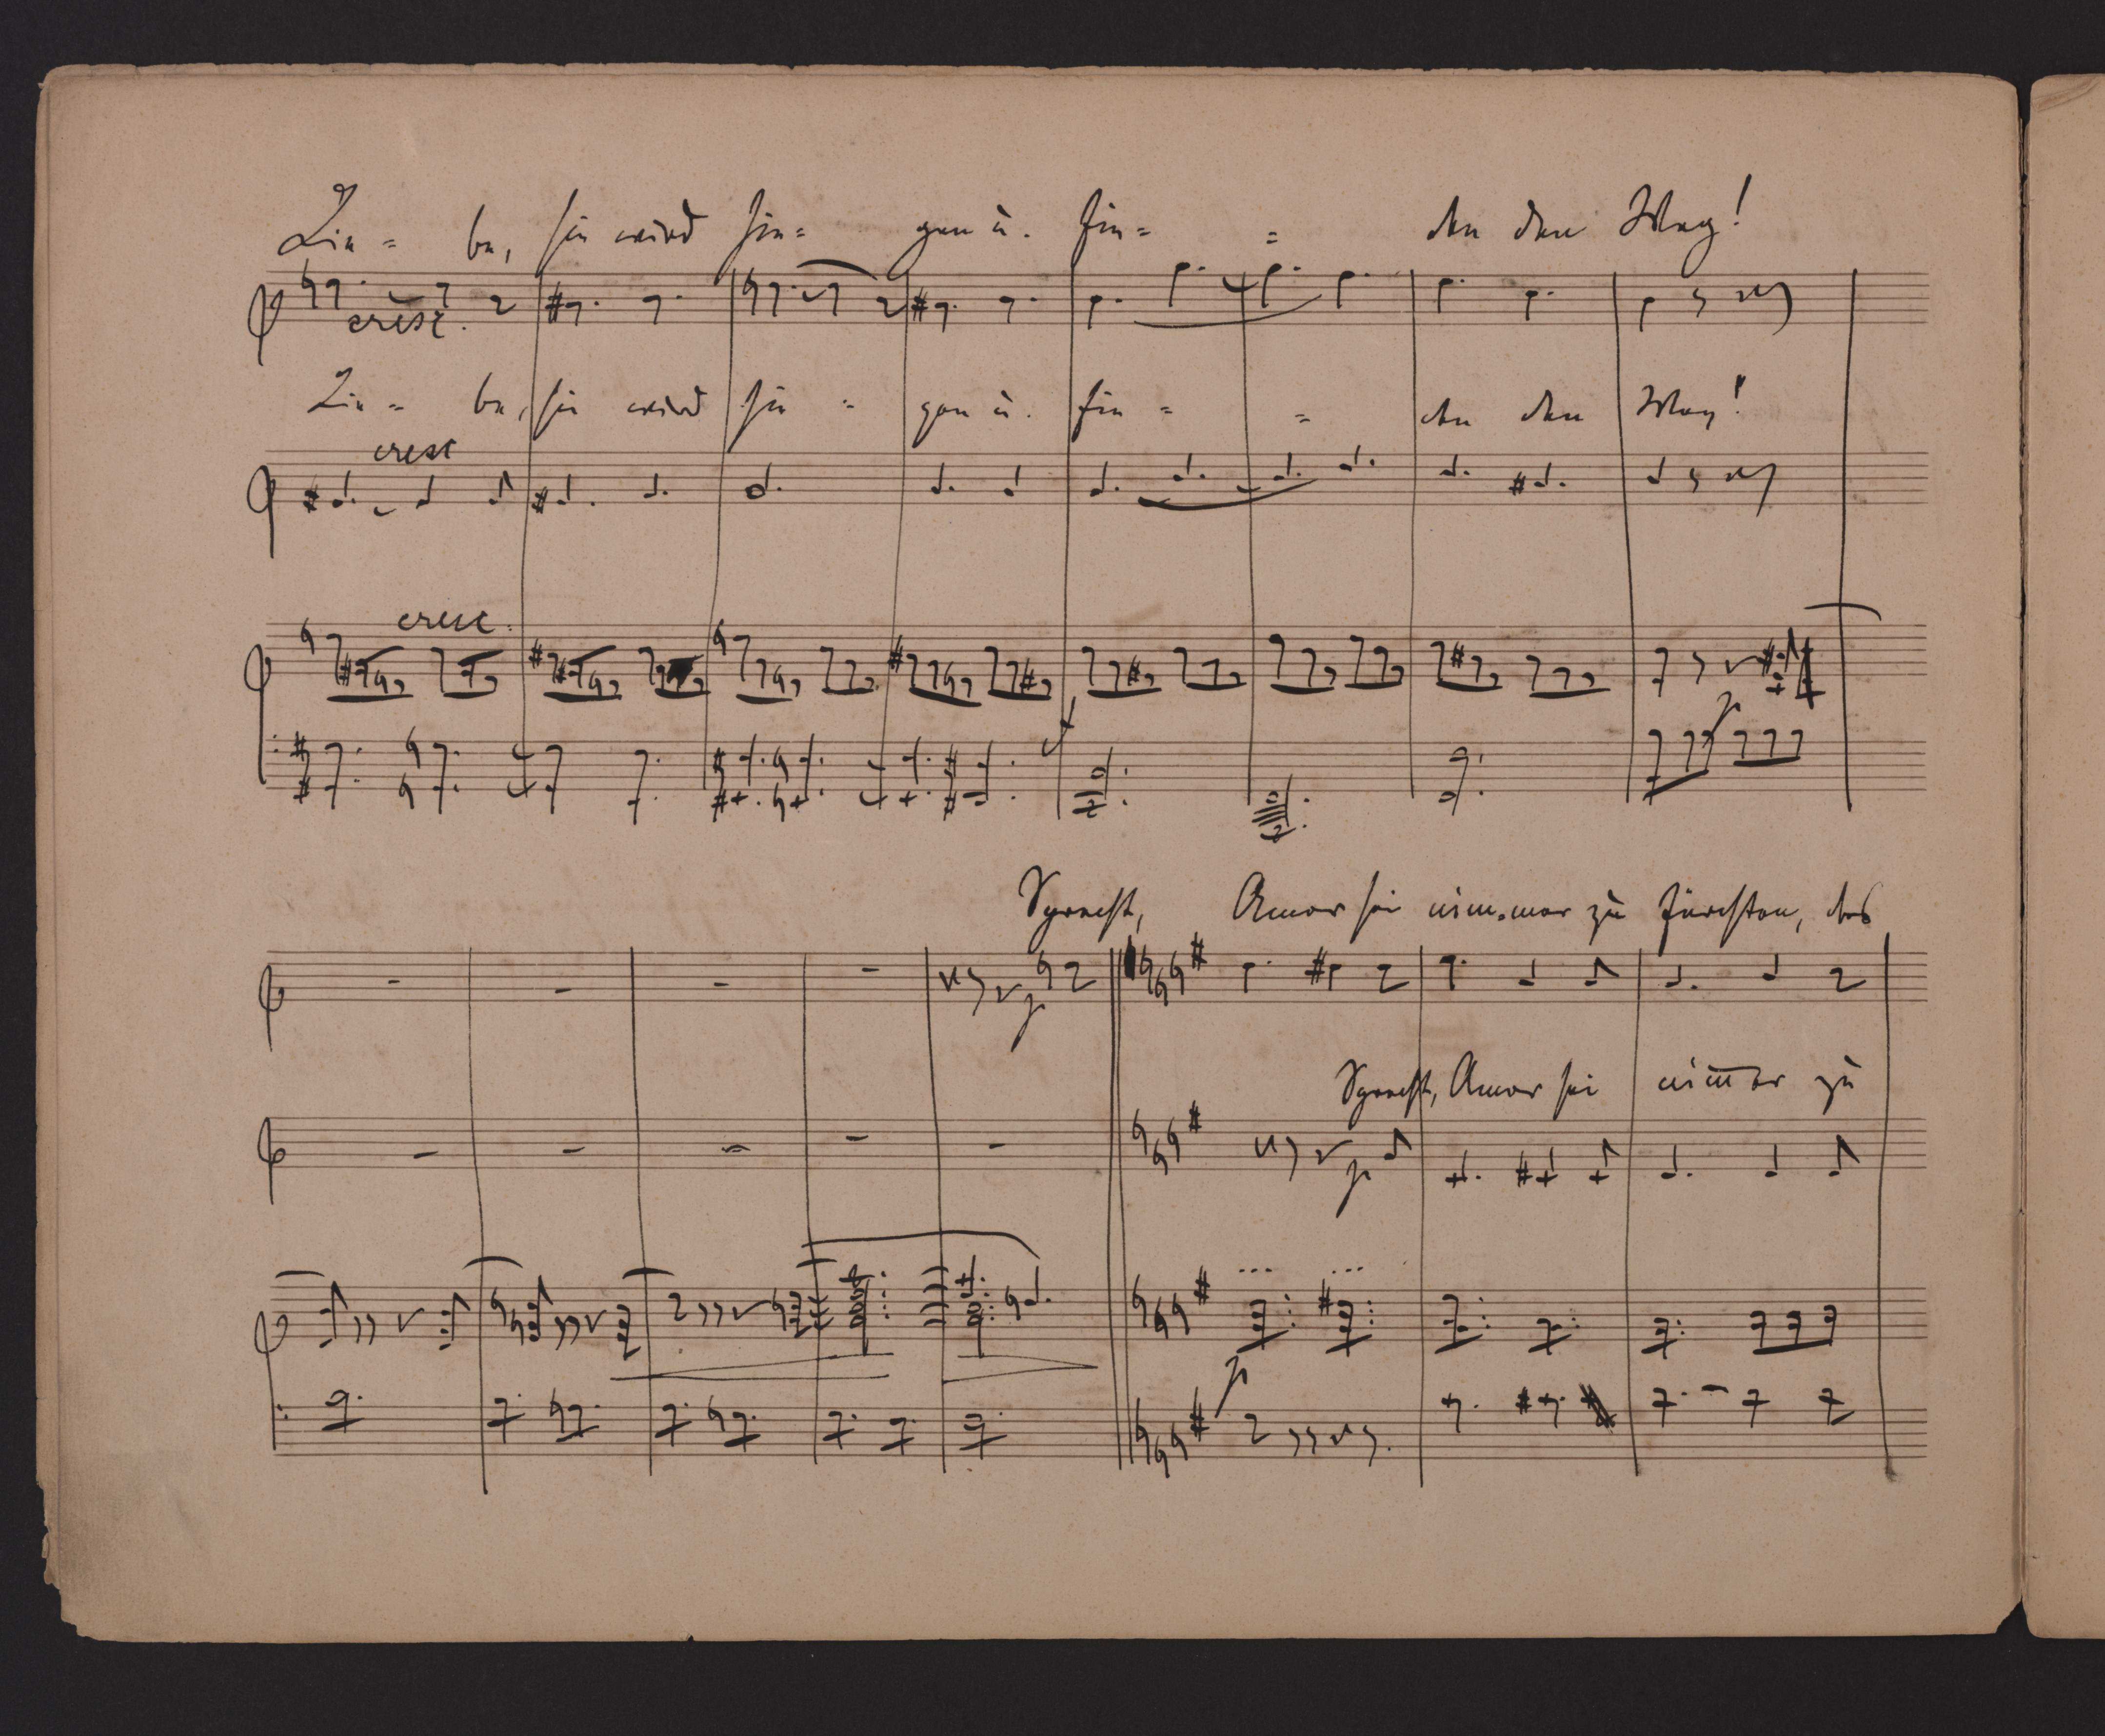 Lie = be, sie wird sie = gen u. fin = = den den Weg!
cresc.
Lie = be, sie wird sie = gen u. fin = = den den Weg!
cresc
cresc.
p
Sprecht, Amor sei nim=mer zu fürchten, das
p
Sprecht, Amor sei nim̅er zu
p
p